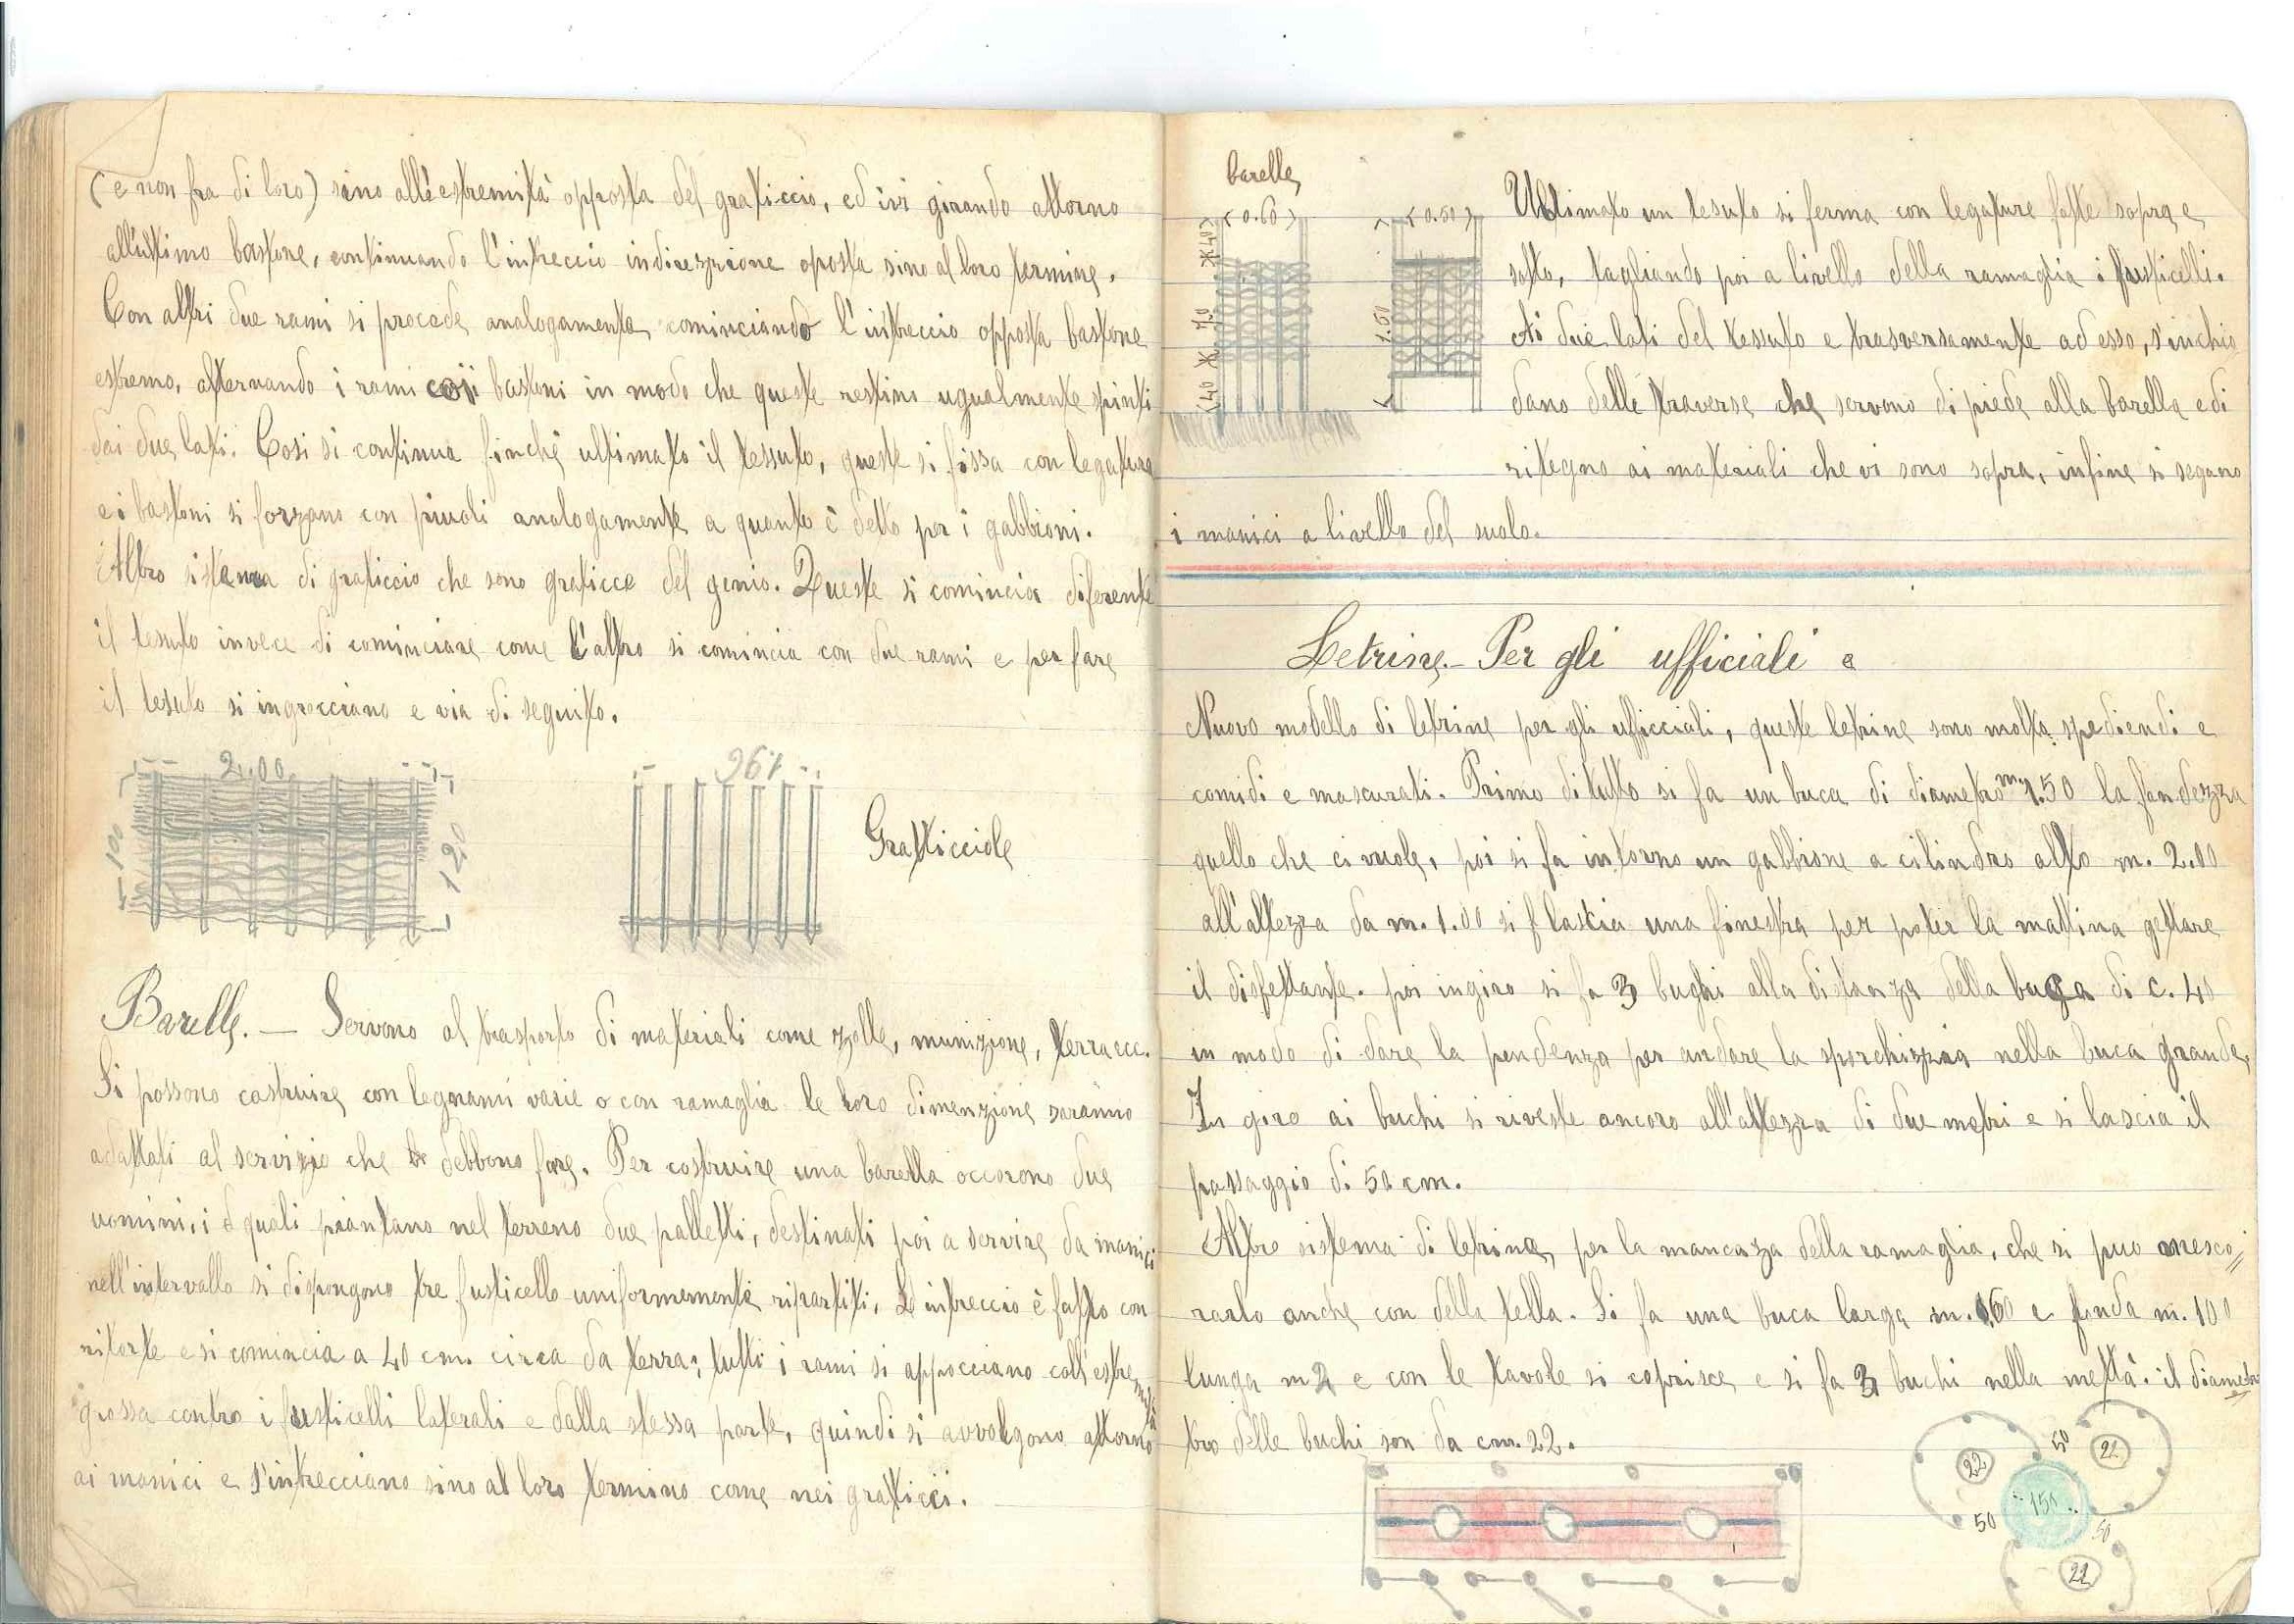 (e non fra di loro) sino all'estremità opposta del graticcio, ed ivi girando attorno
all'ultimo bastone, continuando l'intreccio indirezzione oposta sino al loro termine.
Con altri due rami si procede analogamente cominciando l'intreccio opposta bastone
estremo, alternando i rami coi bastoni in modo che queste restino ugualmente spinti
dai due lati. Cosi si continua finchè ultimato il tessuto, queste si fissa con legature
e i bastoni si forzano con piuoli analogamente a quanto è detto per i gabbioni.
Altro sistema di graticcio che sono graticce del genio. Queste si comincia diferente
il tesuto invece di cominciare come l'altro si comincia con due rami e per fare
il tesuto si ingrocciano e via di seguito.
2.00
1.96
100
120
Gratticciole
Barelle. — Servono al trasporto di materiali come zolle, munizione, terra ecc.
Si possono costruire con legnami varie o con ramaglia le loro dimenzione saranno
adattati al servizio che debbono fare. Per costruire una barella occorono due
uomini, i quali piantano nel terreno due palletti, destinati poi a servire da manici
nell'intervallo si dispongono tre fusticello uniformemente ripartiti. L'intreccio è fatto con
ritorte e si comincia a 40 cm. circa da terra; tutti i rami si appocciano coll'estremità
grossa contro i fusticelli laterali e dalla stessa parte, quindi si avvolgono attorno
ai manici e s'intrecciano sino al loro termino come nei graticci.
barelle
0.60
0.50
40
70
40
1.50
Ultimato un tesuto si ferma con legature fatte sopra e
sotto, tagliando poi a livello della ramaglia i fusticelli.
Ai due lati del tessuto e trasversamente ad esso, s'inchio
dano delle traverse che servono di piede alla barella e di
ritegno ai materiali che vi sono sopra, infine si segano
i manici a livello del suolo.
Letrine.- Per gli ufficiali e
Nuovo modello di letrine per gli ufficciali, queste letrine sono molto spediendi e
comidi e mascurati. Primo di tutto si fa un buca di diametro m 1.50 la fondezza
quello che ci vuole, poi si fa intorno un gabbione a cilindro alto m. 2.00
all'altezza da m. 1.00 si lascia una finestra per poter la mattina gettare
il disfettante. poi ingiro si fa 3 bughi alla distanza della buca di c. 40
in modo di dare la pendenza per andare la sporchizzia nella buca grande.
In giro ai buchi si riveste ancoro all'altezza di due metri e si lascia il
passaggio di 50 cm.
Altro sistema di letrine, per la mancaza della ramaglia, che si puo
rarlo anche con della tella. Si fa una buca larga m. 60 e fonda m. 100
lunga m 2 e con le tavole si coprisce e si fa 3 buchi nella mettà. il diame
tro delle buchi son da cm. 22.
22
50
22
150
50
50
22